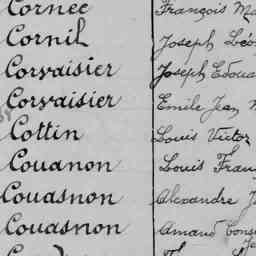 Cornée François
Cornil Joseph
Corvaisier Joseph
Corvaisier Emile Jean
Cottin Louis Victor
Couanon Louis
Couasnon Alexandre
Couasnon